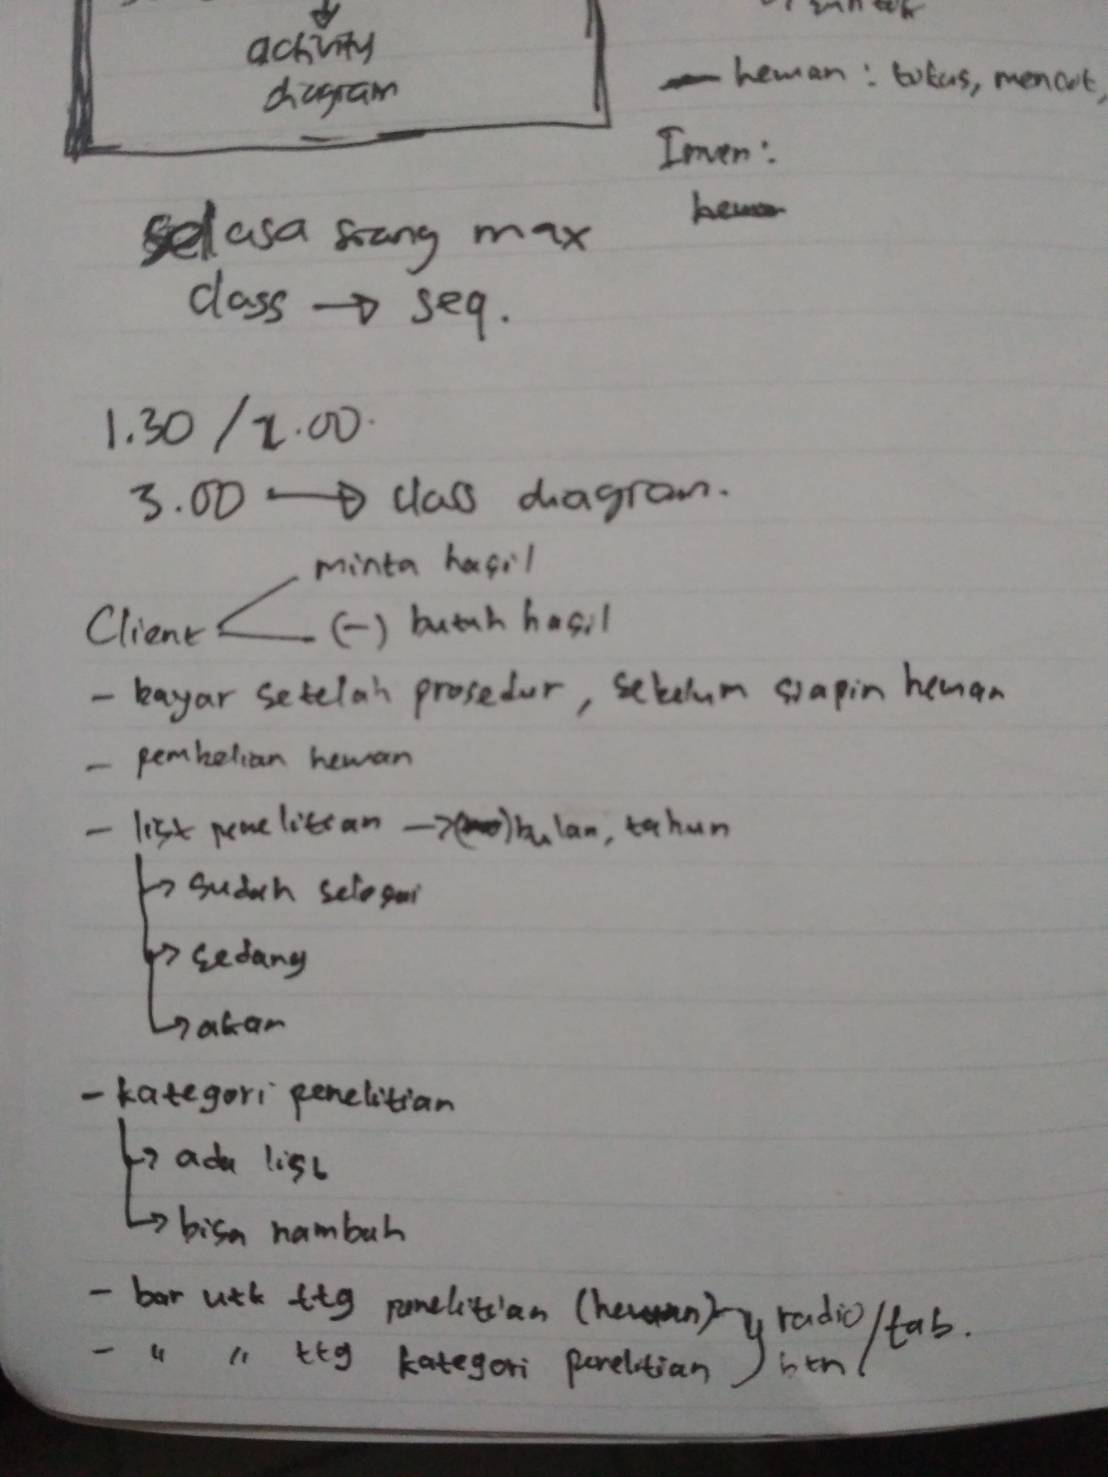 activity
diagram
hewan : tikus, mencit,
Inven :
hewan
selasa siang max
class → seq.
1.30 / 2.00.
3.00 → class diagram.
Client
minta hasil
(-) butuh hasil
- bayar setelah prosedur, sebelum siapin hewan
- pembelian hewan
- list penelitian → bulan, tahun
→ sudah selesai
→ sedang
→ akan
- kategori penelitian
→ ada list
→ bisa nambah
- bar utk ttg penelitian (hewan) radio/tab.
- " " ttg kategori penelitian btn